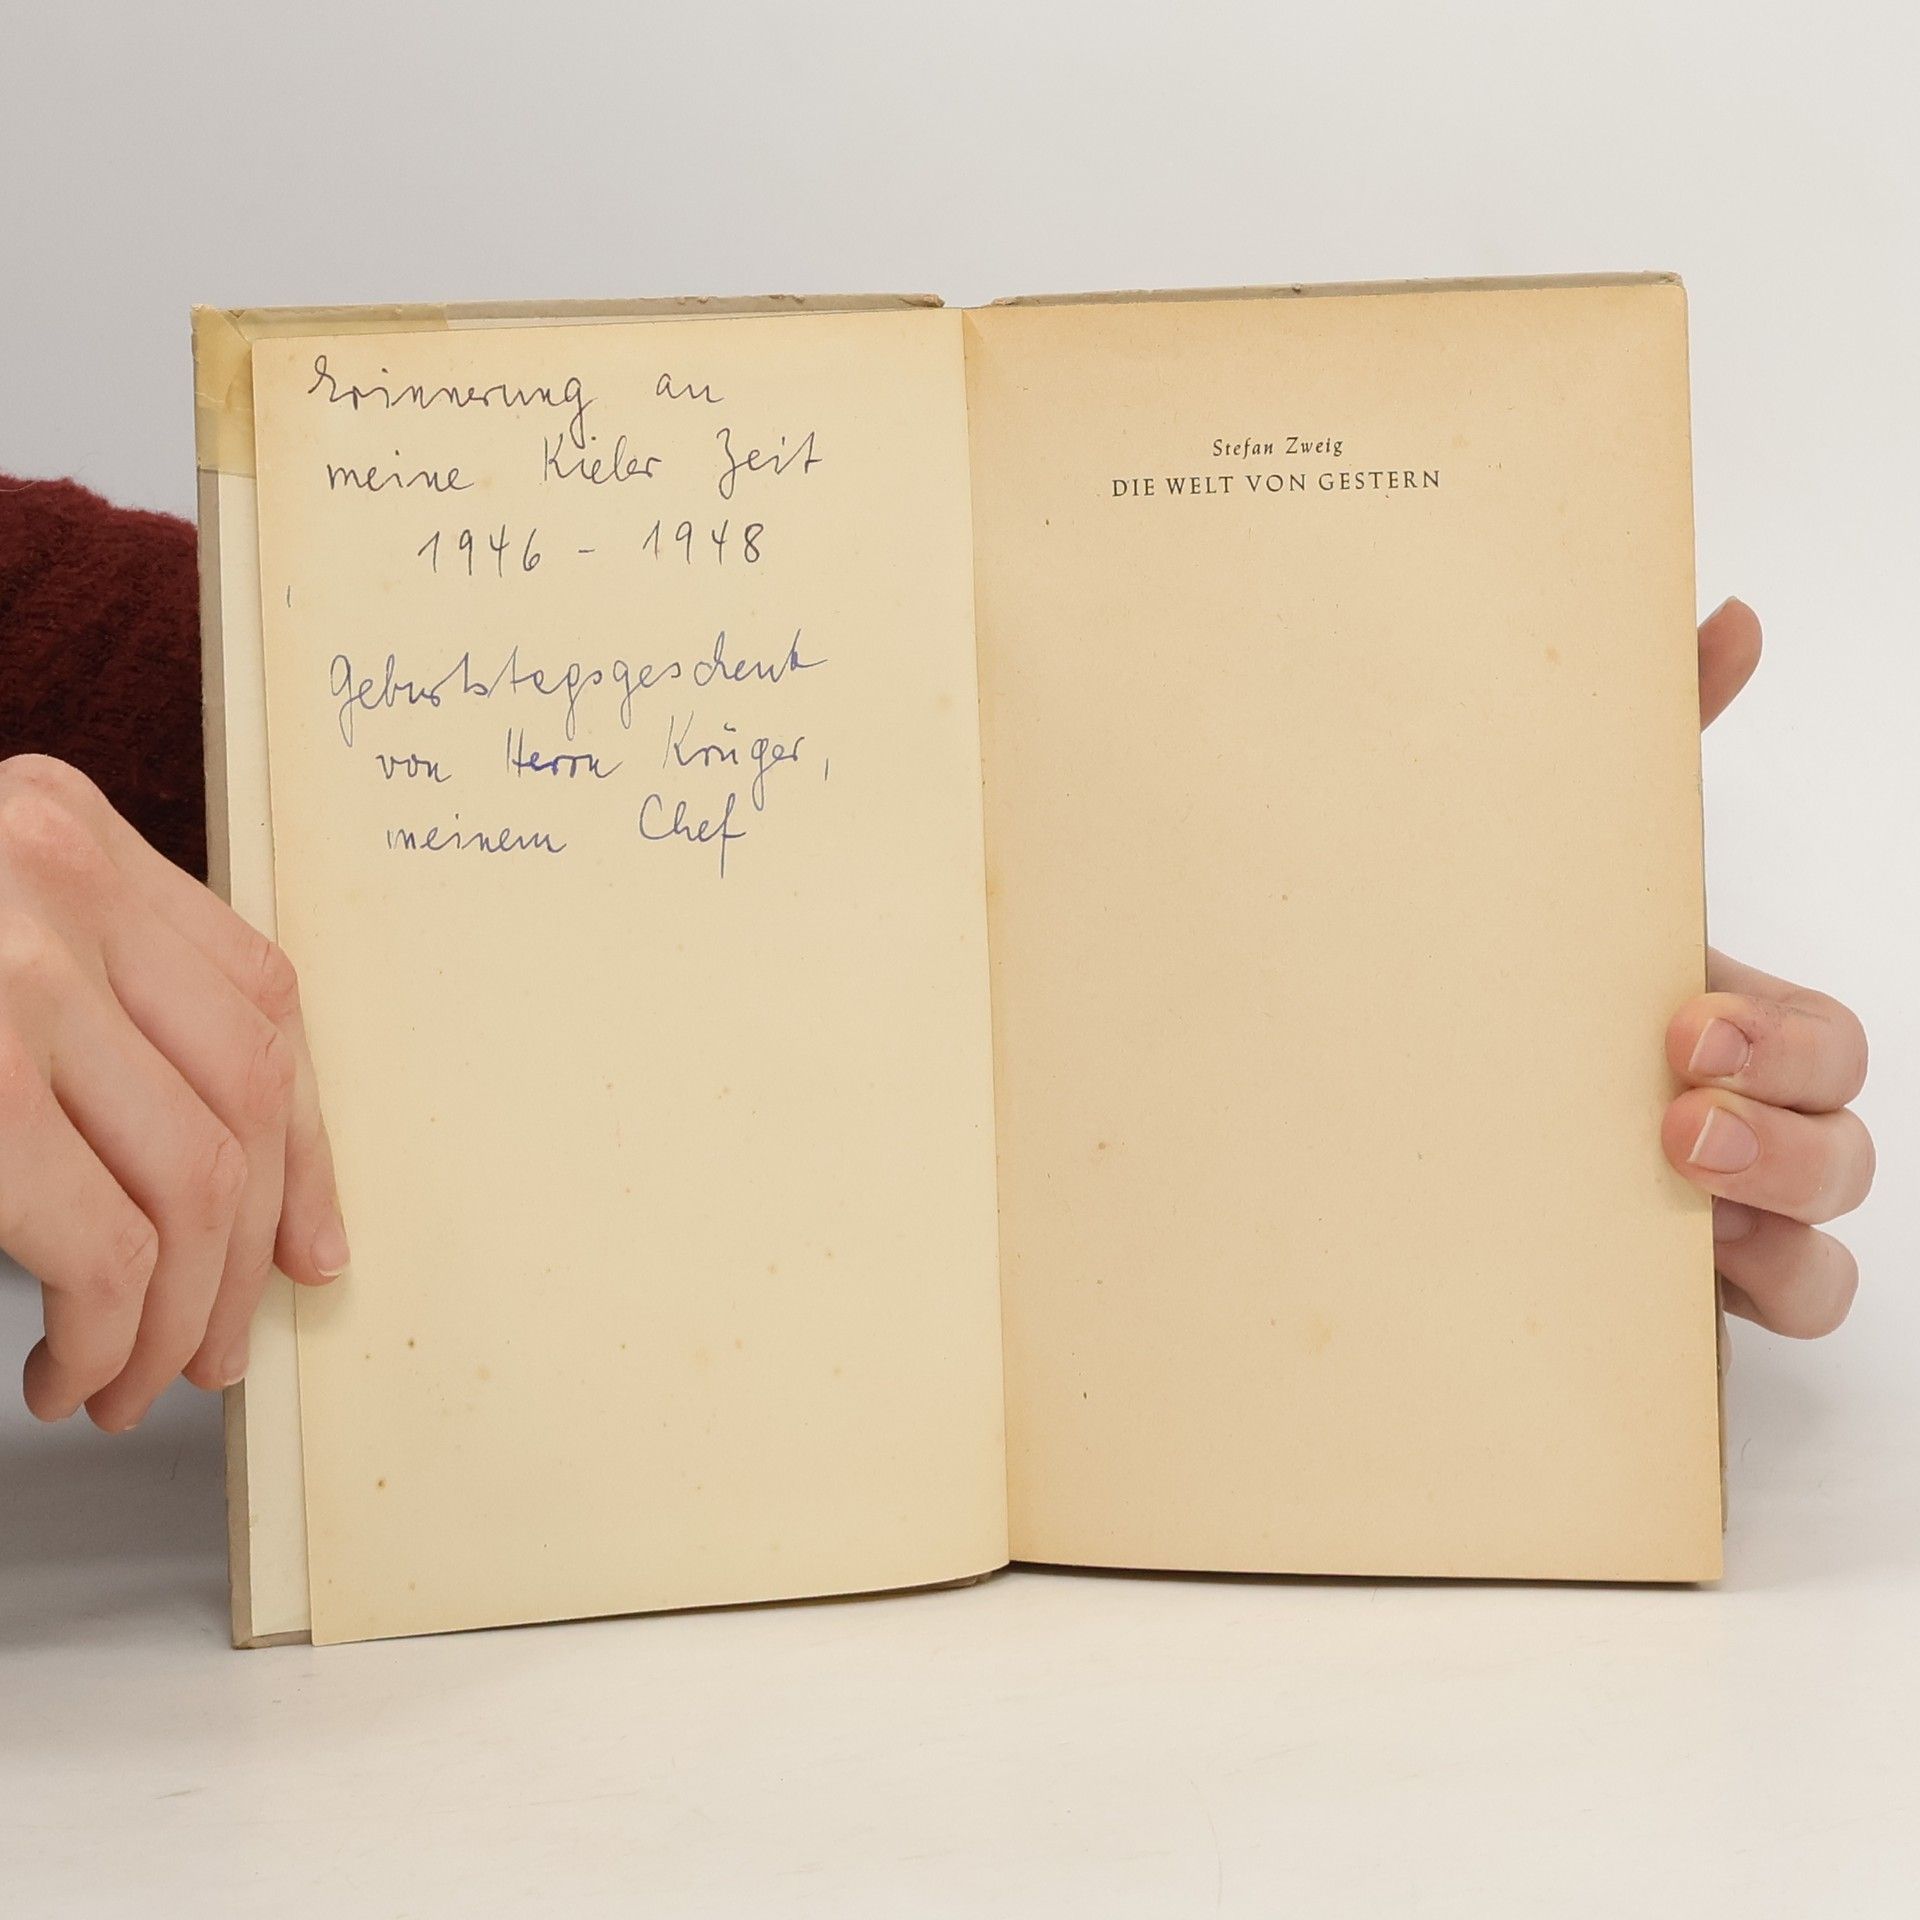 Erinnerung an
meine Kieler Zeit
1946 - 1948
Geburtstagsgeschenk
von Herrn Krüger,
meinem Chef
Stefan Zweig
DIE WELT VON GESTERN